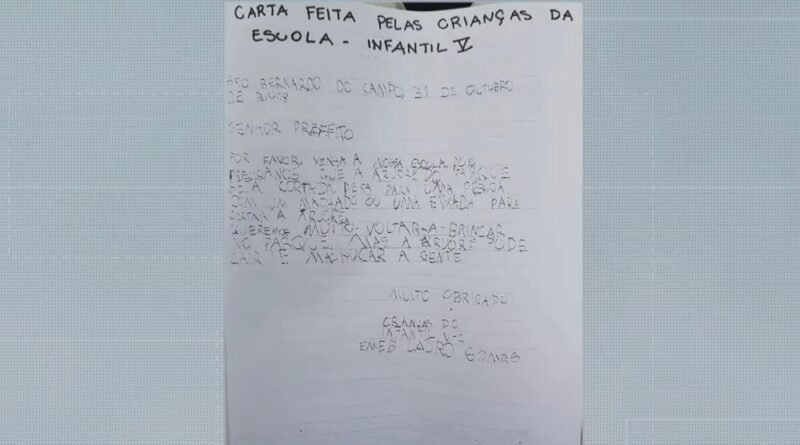 CARTA FEITA PELAS CRIANÇAS DA
ESCOLA - INFANTIL V
SÃO BERNARDO DO CAMPO, 31 DE OUTUBRO
DE 2018
SENHOR PREFEITO
POR FAVOR, VENHA A NOSSA ESCOLA POIS
PRECISAMOS QUE A ÁRVORE DO PARQUE
SEJA CORTADA PEÇA PARA UMA PESSOA
COM UM MACHADO OU UMA PARA
CORTAR A ÁRVORE.
QUEREMOS MUITO VOLTAR A BRINCAR
NO PARQUE, MAS A ÁRVORE PODE
CAIR E MACHUCAR A GENTE.
MUITO OBRIGADO!
CRIANÇAS DO
INFANTIL V-C
EMEB LAURO GOMES